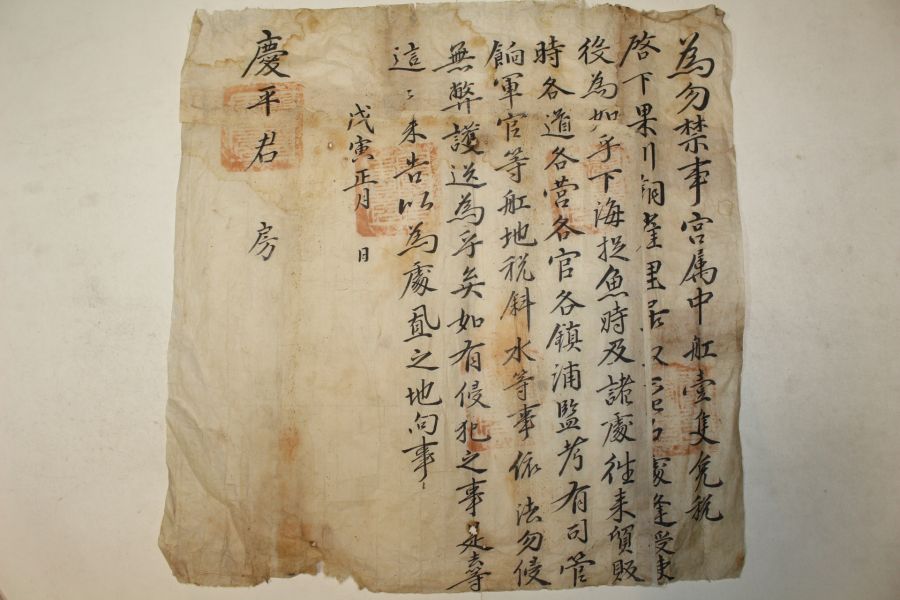 為勿禁事宮属中舡壹隻免稅
啓下果川銅雀里居處逢受
後為如乎下海捉魚時及諸處徃来貿販
時各道各营各官各鎮浦監考有司管
餉軍官等舡地稅斜水等事依法勿侵
無弊護送為乎矣如有侵犯之事是去等
這〻来告以為處置之地向事
戊寅正月 日
慶平君 房